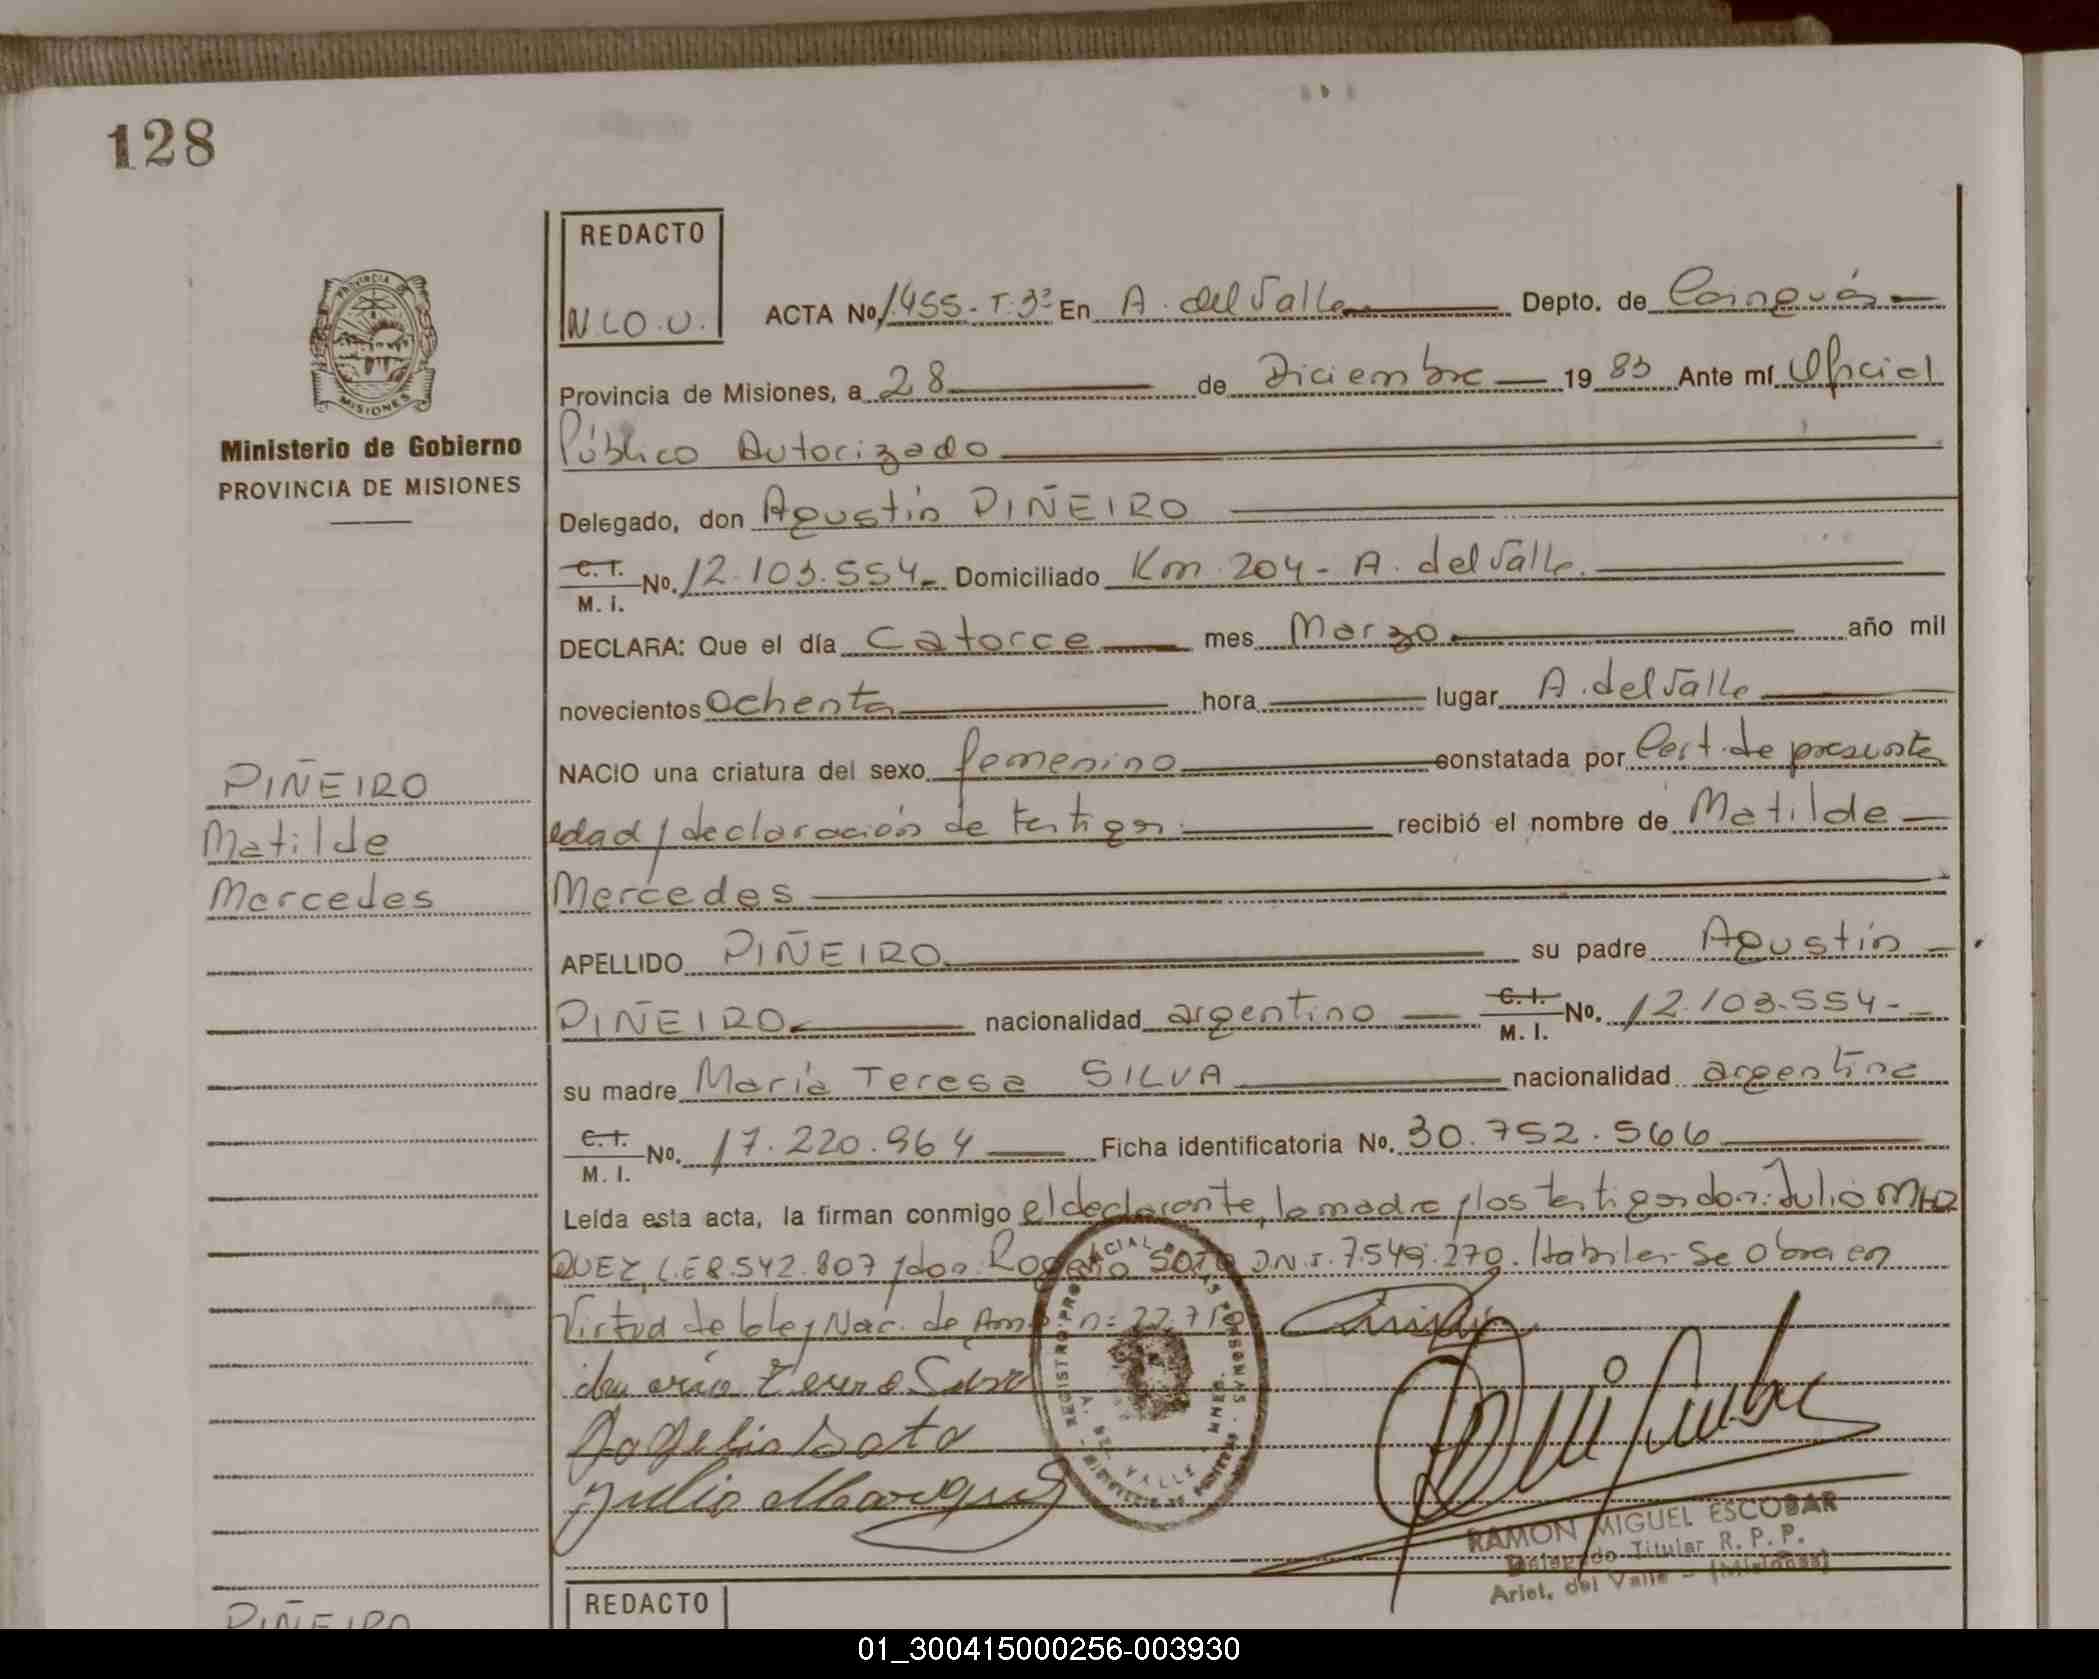 128
REDACTO
N.LO.U.
PROVINCIA DE
MISIONES
Ministerio de Gobierno
PROVINCIA DE MISIONES
ACTA No. 1.455-T.3º En A. del Valle Depto. de Cainguás
Provincia de Misiones, a 28 de Diciembre 1983 Ante mí Oficial
Público Autorizado
Delegado, don Agustín PIÑEIRO
C. I. M. I. No. 12.103.554 Domiciliado Km 204 - A. del Valle.
DECLARA: Que el día Catorce mes Marzo año mil
novecientos Ochenta hora lugar A. del Valle
NACIO una criatura del sexo femenino constatada por Cert. de presunta
edad y declaración de testigos recibió el nombre de Matilde
Mercedes
APELLIDO PIÑEIRO su padre Agustín
PIÑEIRO nacionalidad argentino C. I. M. I. No. 12.103.554-
su madre María Teresa SILVA nacionalidad argentina
C. I. M. I. No. 17.220.964 Ficha identificatoria No. 30.752.566
Leída esta acta, la firman conmigo el declarante, la madre y los testigos don: Julio MAR
QUEZ, L.E 8.542.807 y don Rogelio SOTO D.N.I. 7.549.270. Habiles - Se obra en
Virtud de la ley Nac. de Am n: 22.
PIÑEIRO
Matilde
Mercedes
Rogelio Soto
Julio Marquez
REGISTRO PROVINCIAL DE LAS PERSONAS
A. DEL VALLE
RAMON MIGUEL ESCOBAR
Delegado Titular R. P. P.
Ariel. del Valle - (Misiones)
REDACTO
PIÑEIRO
01_300415000256-003930